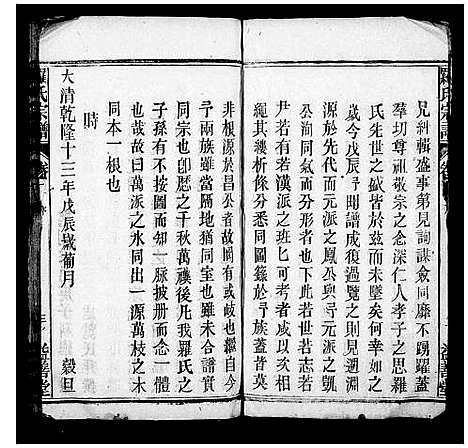 兄糾輯盛事第見詢謀僉同靡不踴躍蓋
羣切尊祖敬宗之念深仁人孝子之思羅
氏先世之猷皆於玆而未墜矣何幸如
歲今戊辰予聞譜成復過覽之則見遡淵
源於先代而元派之鳳公與予元派之
公洵同氣而分形者也下式若世若志若
尹若有若漢派之班匕可考其間支分派
繩其析條分悉同圖錄於予族蓋皆莫
非根源於昌公者故間有或歧也繼自今
予兩族雖當隔地猶同室也雖未合譜實
同宗也卽歷之千秋萬禩後凡我羅氏之
子孫有不按圖而如一身披册而念一體
也哉故曰萬派之水同出一源萬枝之木
同本一根也
時
大清乾隆十三年戊辰歲葡月 穀旦
羅氏宗譜
羅氏宗譜
善堂
善堂